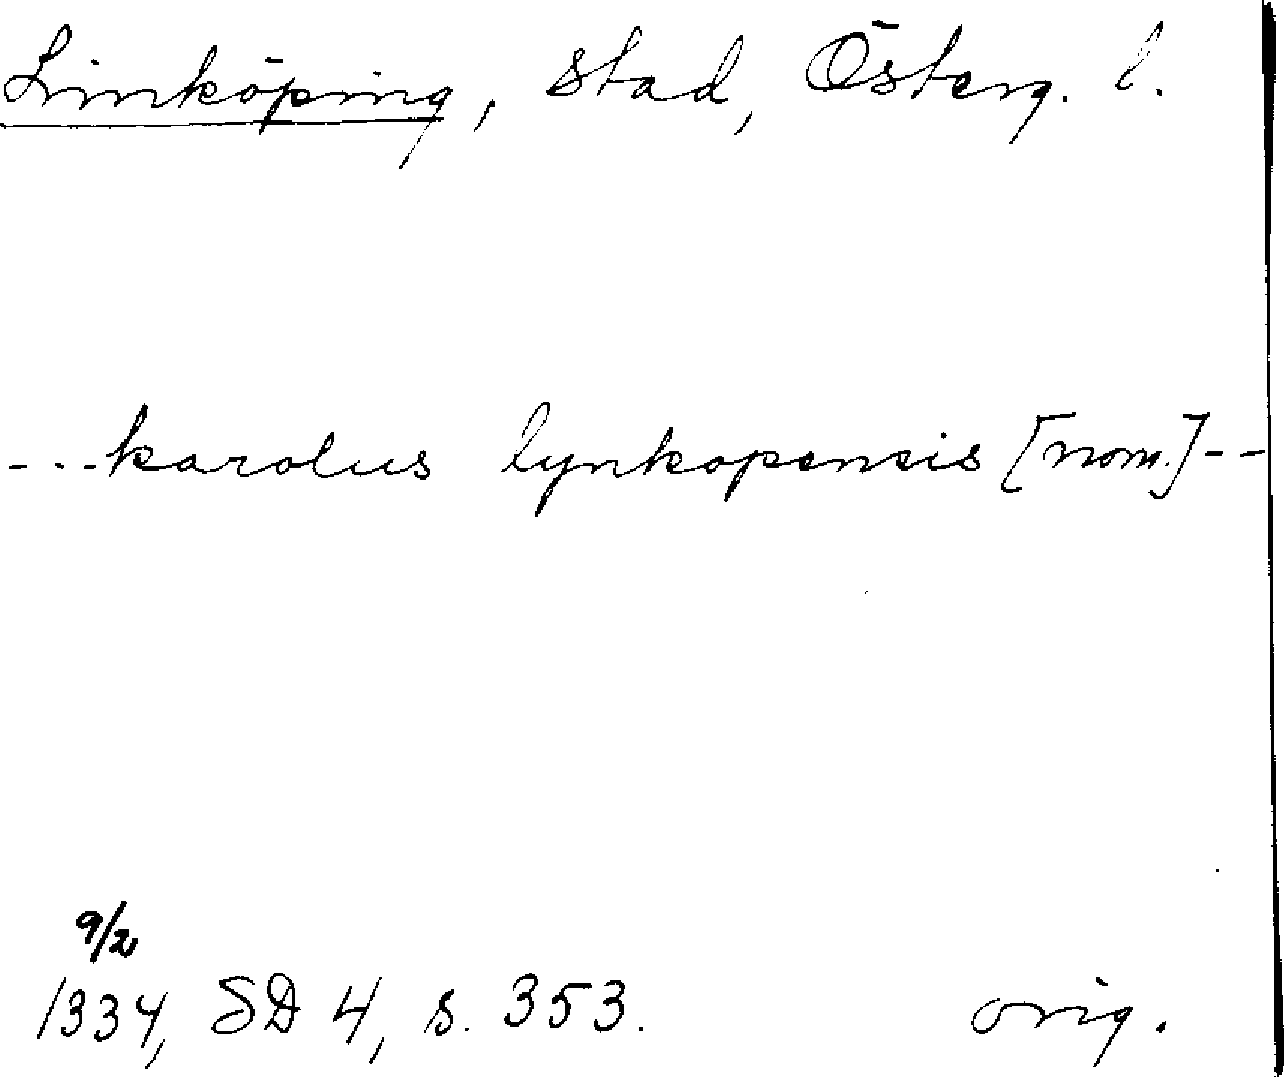 Linköping, stad, Österg. l.
---karolus lynkopensis [nom.]--
9/2
1334, SD 4, s. 353. orig.